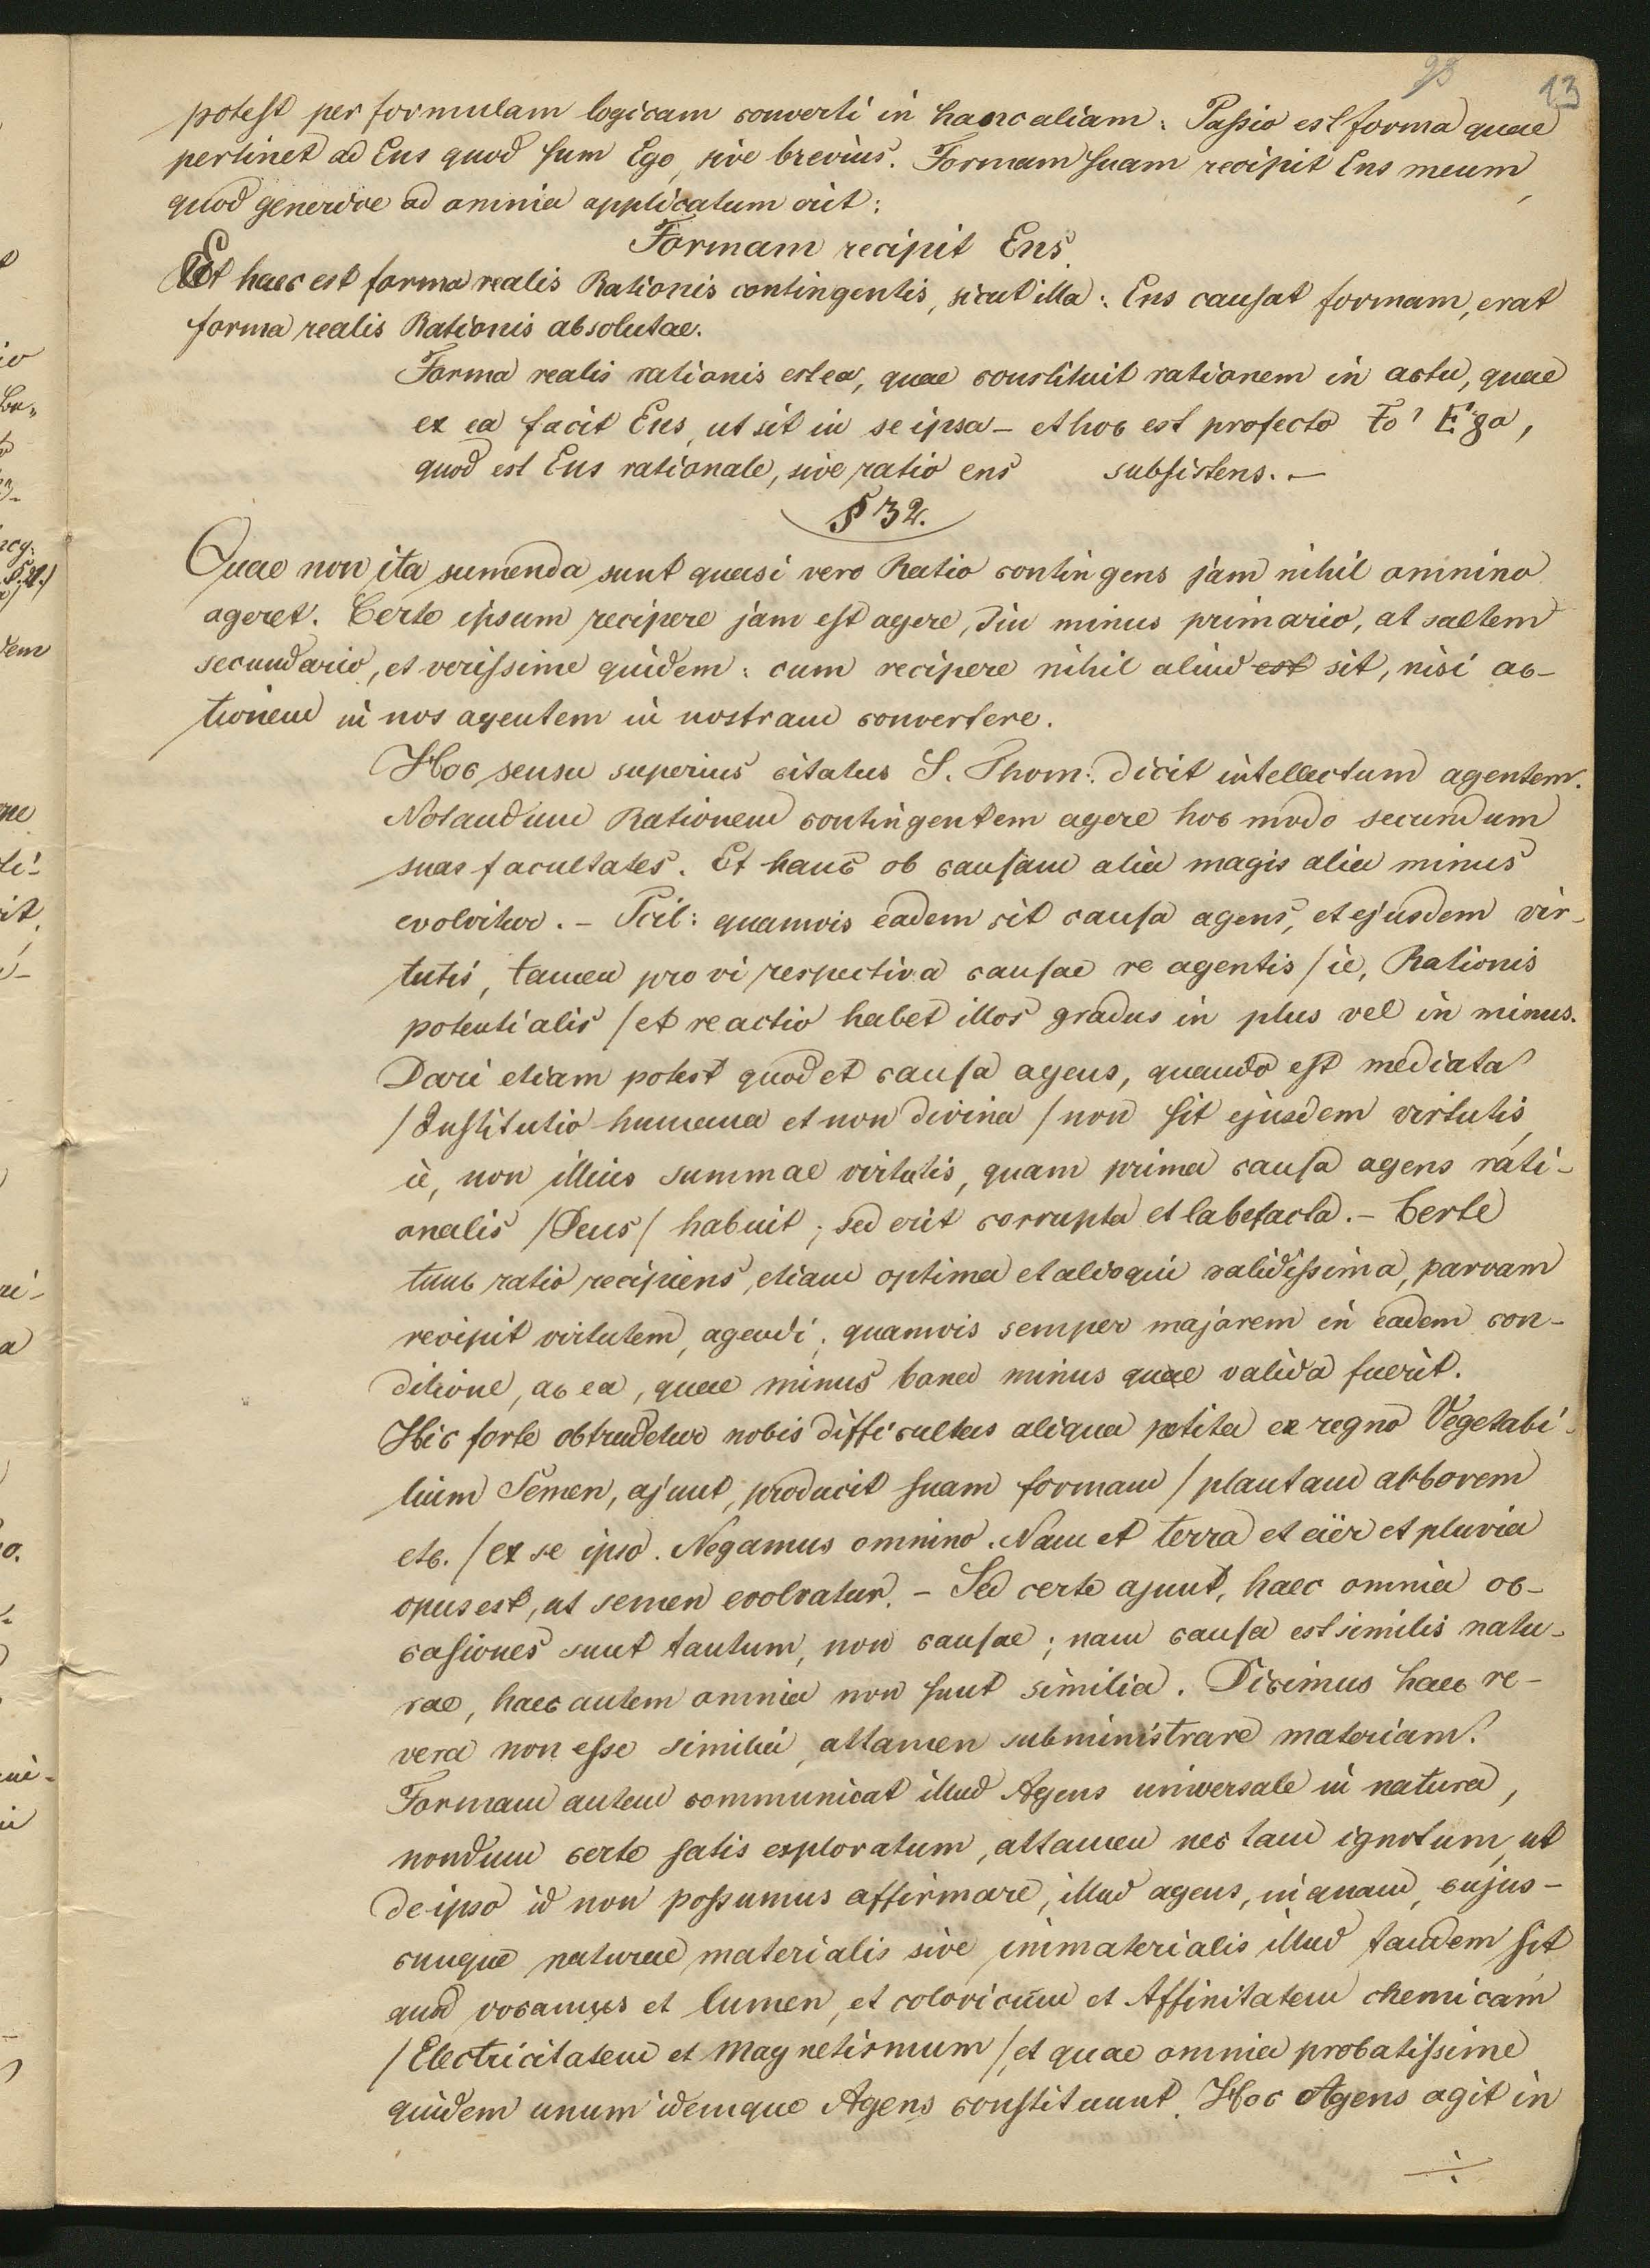 23 13
potest per formulam logicam converti in hanc aliam: Passio est forma quae
pertinet ad Ens quod sum Ego, sive brevius. Formam suam recipit Ens meum,
quod generice ad omnia applicatum erit:
Formam recipit Ens.
Et haec est forma realis Rationis contingentis, sicut illa: Ens causat formam, erat
forma realis Rationis absolutae.
Forma realis rationis est ea, quae constituit rationem in actu, quae
ex ea facit Ens, ut sit in se ipsa – et hoc est profecto το' Εγο,
quod est Ens rationale, sive ratio ens subsistens. –
§ 32.
Quae non ita sumenda sunt quasi vero Ratio contingens jam nihil omnino
ageret. Certe ipsum recipere jam est agere, sin minus primario, at saltem
secundario, et verissime quidem: cum recipere nihil aliud est sit, nisi ac-
tionem in nos agentem in nostram convertere.
Hoc sensu superius citatus S. Thom: dicit intellectum agentem.
Notandum Rationem contingentem agere hoc modo secundum
suas facultates. Et hanc ob causam alia magis alia minus
evolvitur. – Scil: quamvis eadem sit causa agens, et ejusdem vir-
tutis, tamen pro vi respectiva causae re agentis /ie, Rationis
potentialis / et reactio habet illos gradus in plus vel in minus.
Dari etiam potest quod et causa agens, quando est mediata
/Institutio humana et non divina / non sit ejusdem virtutis,
ie, non illius summae virtutis, quam prima causa agens rati-
onalis /Deus/ habuit; sed erit corrupta et labefacta. – Certe
tunc ratio recipiens, etiam optima et alioqui validissima, parvam
recipit virtutem, agendi; quamvis semper majorem in eadem con-
ditione, ac ea, quae minus bona minus quae valida fuerit.
Hic forte obtrudetur nobis difficultas aliqua petita ex regno Vegetabi-
lium Semen, ajunt, producit suam formam / plantam arborem
etc. / ex se ipso. Negamus omnino. Nam et terra et aër et pluvia
opus est, ut semen evolvatur. – Sed certe ajunt, haec omnia oc-
casiones sunt tantum, non causae; nam causa est similis natu-
rae, haec autem omnia non sunt similia. Dicimus haec re-
vera non esse similia, attamen subministrare materiam.
Formam autem communicat illud Agens universale in natura,
nondum certe satis exploratum, attamen nec tam ignotum, ut
de ipso id non possumus affirmare, illud agens, inquam, cujus-
cunque naturae materialis sive immaterialis illud tandem sit
quod vocamus et lumen, et caloricum et Affinitatem chemicam
/Electricitatem et Magnetismum /, et quae omnia probatissime
quidem unum idemque Agens constituunt. Hoc Agens agit in